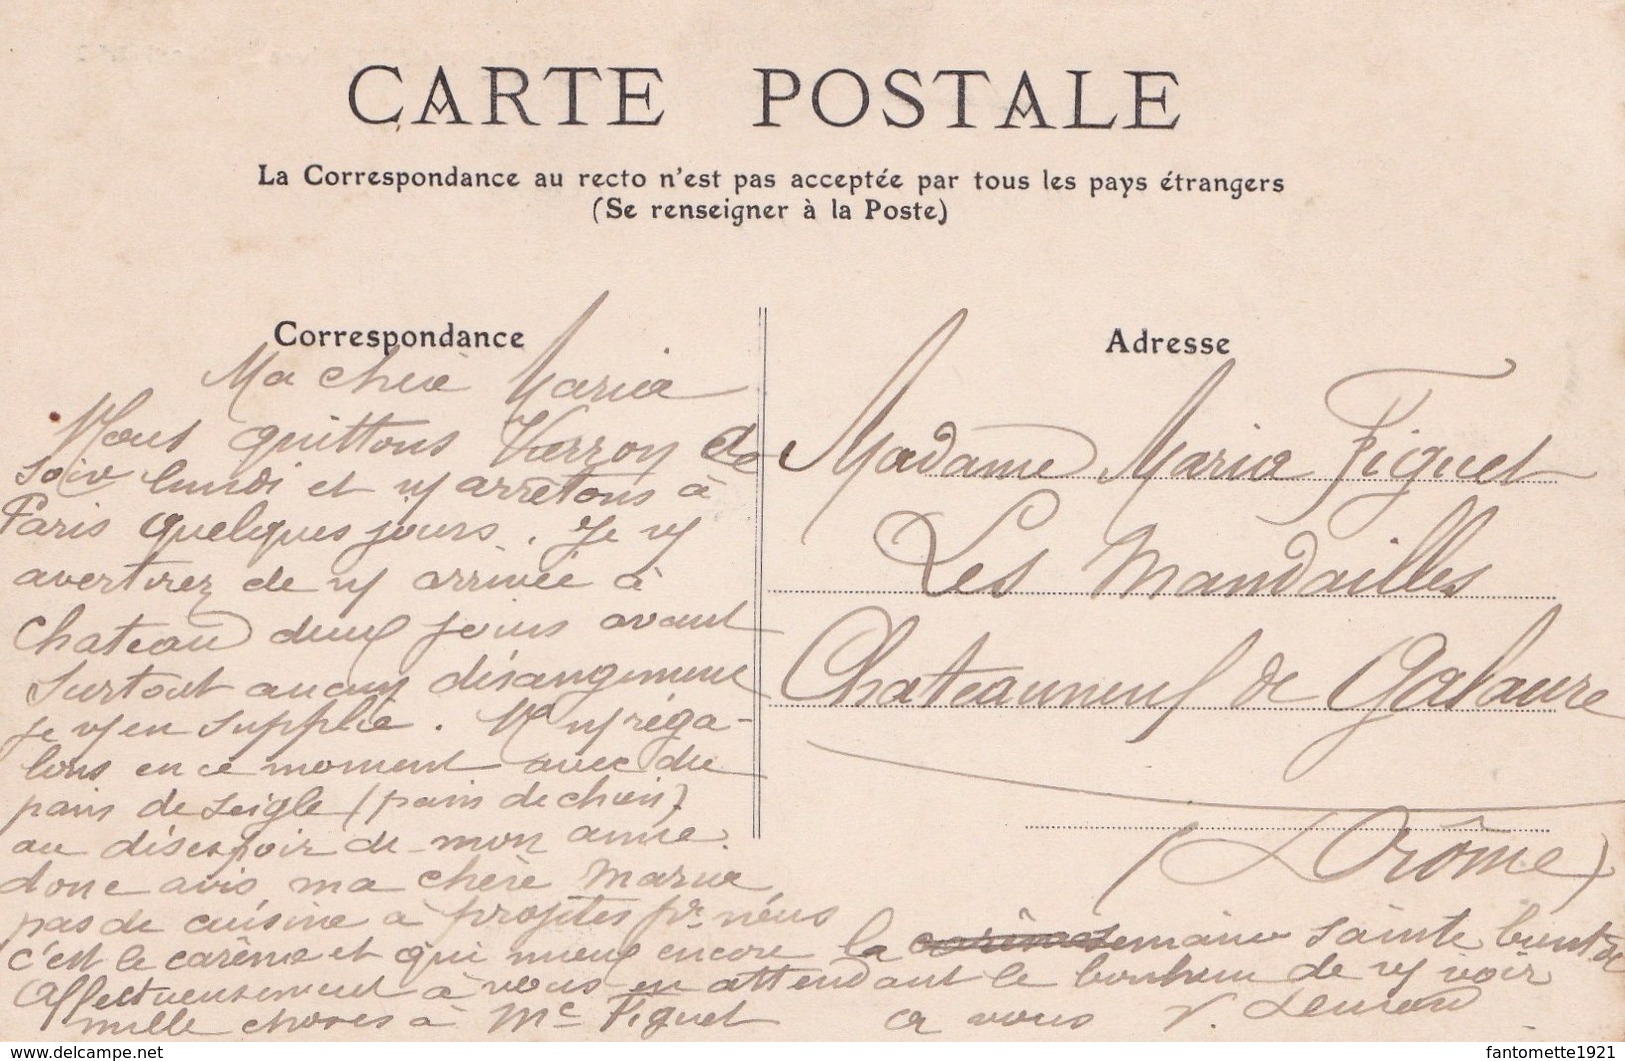 CARTE POSTALE
La Correspondance au recto n'est pas acceptée par tous les pays étrangers
(Se renseigner à la Poste)
Correspondance
Ma chère Maria
Nous quittons de
soir lundi et n/ arrêtons à
Paris quelques jours. Je v/
avertirez de n/ arrivée à
Chateau deux jours avant
Surtout aucun désangement
je v/ en supplie. N/ régа-
lons en ce moment avec du
pain de seigle (pain de chien)
au désespoir de mon amie.
donc avis ma chère Maria
pas de cuisine à projets pr nous
c'est le carême et qui mieux encore la semaine sainte
Affectueusement à vous en attendant le bonheur de v/ voir
mille choses à Mc Figuet
a vous V.
Adresse
Madame Maria Figuet
Les Mandailles
Chateauneuf de Galaure
(Drôme)
fantomette1921